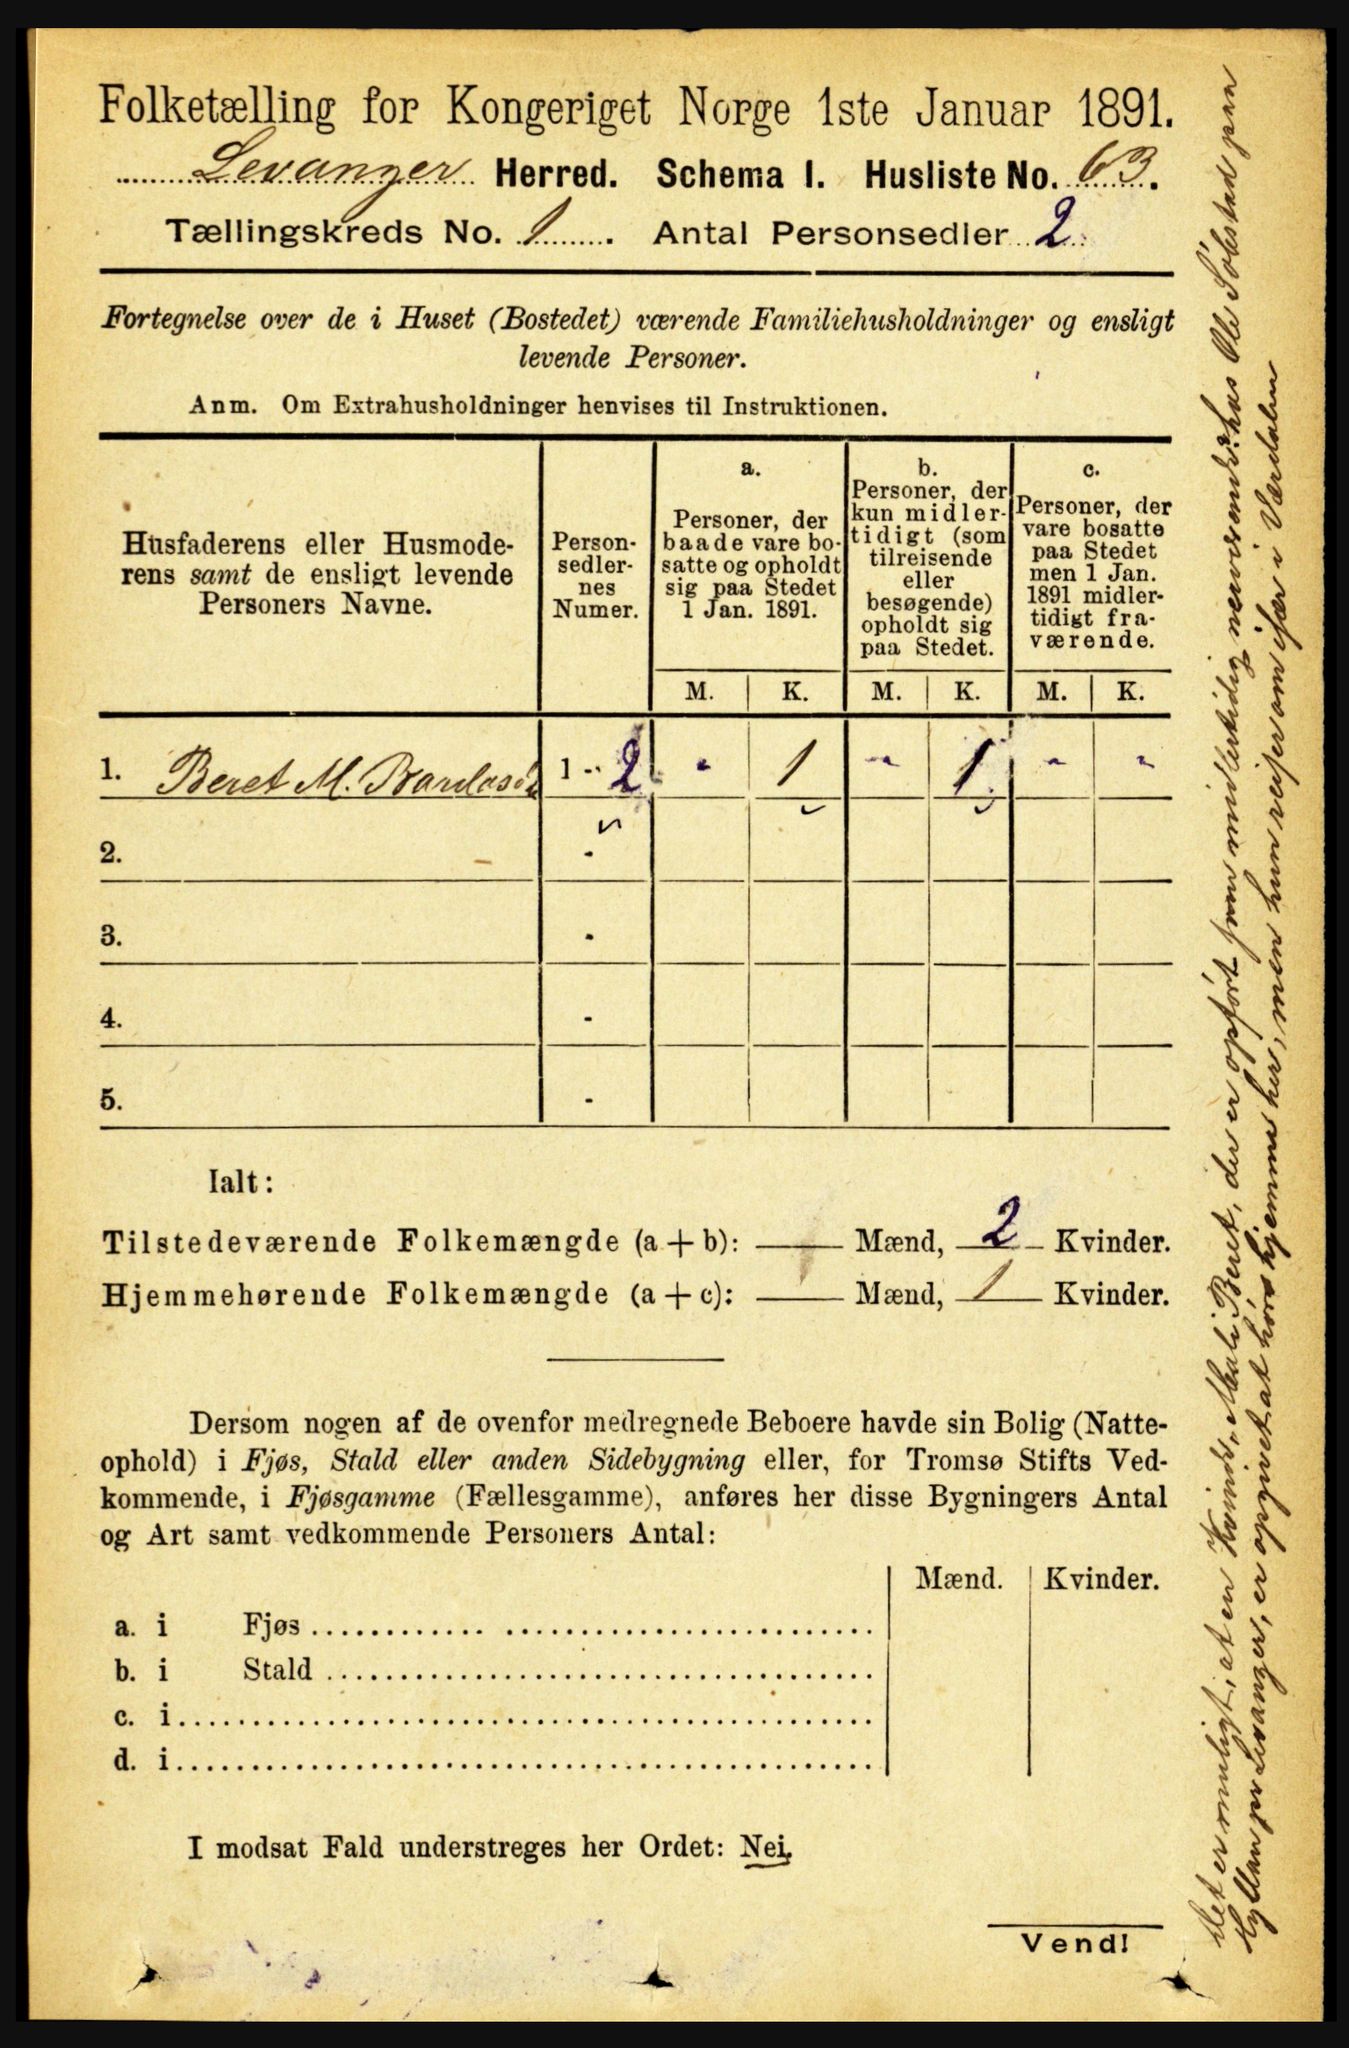 Folketælling for Kongeriget Norge 1ste Januar 1891.
Levanger Herred. Schema I. Husliste No. 63.
Tællingskreds No. 1. Antal Personsedler 2
Fortegnelse over de i Huset (Bostedet) værende Familiehusholdninger og ensligt
levende Personer.
Anm. Om Extrahusholdninger henvises til Instruktionen.
Husfaderens eller Husmode-
rens samt de ensligt levende
Personers Navne.
Person-
sedler-
nes
Numer.
a.
Personer, der
baade vare bo-
satte og opholdt
sig paa Stedet
1 Jan. 1891.
b.
Personer, der
kun midler-
tidigt (som
tilreisende
eller
besøgende)
opholdt sig
paa Stedet.
c.
Personer, der
vare bosatte
paa Stedet
men 1 Jan.
1891 midler-
tidigt fra-
værende.
M. K. M. K. M. K.
1. Beret M. 1 - 2 " 1 " 1 " "
2. -
3. -
4. -
5. -
Ialt:
Tilstedeværende Folkemængde (a + b): Mænd, 2 Kvinder.
Hjemmehørende Folkemængde (a + c): Mænd, 1 Kvinder.
Dersom nogen af de ovenfor medregnede Beboere havde sin Bolig (Natte-
ophold) i Fjøs, Stald eller anden Sidebygning eller, for Tromsø Stifts Ved-
kommende, i Fjøsgamme (Fællesgamme), anføres her disse Bygningers Antal
og Art samt vedkommende Personers Antal:
Mænd. Kvinder.
a. i Fjøs
b. i Stald
c. i
d. i
I modsat Fald understreges her Ordet: Nei.
Vend!
Det er muligt, at en Kvinde, Mali Beret, der er opført som midlertidig nærværende hos Ole paa
pr Levanger, er opgivet at høre hjemme her, men hun reiser om især i Værdalen